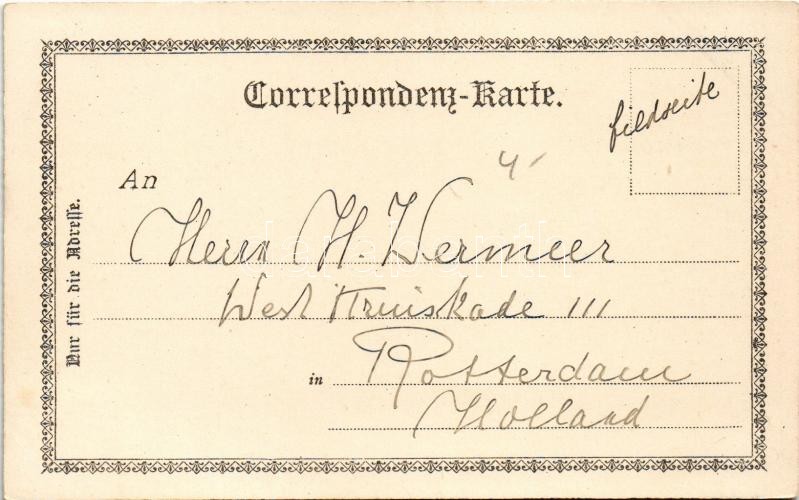 Correſpondenz-Karte.
Bildseite
4-
An
Herrn H. Vermeer
West Kruiskade 111
in Rotterdam
Holland
Nur für die Adreſſe.